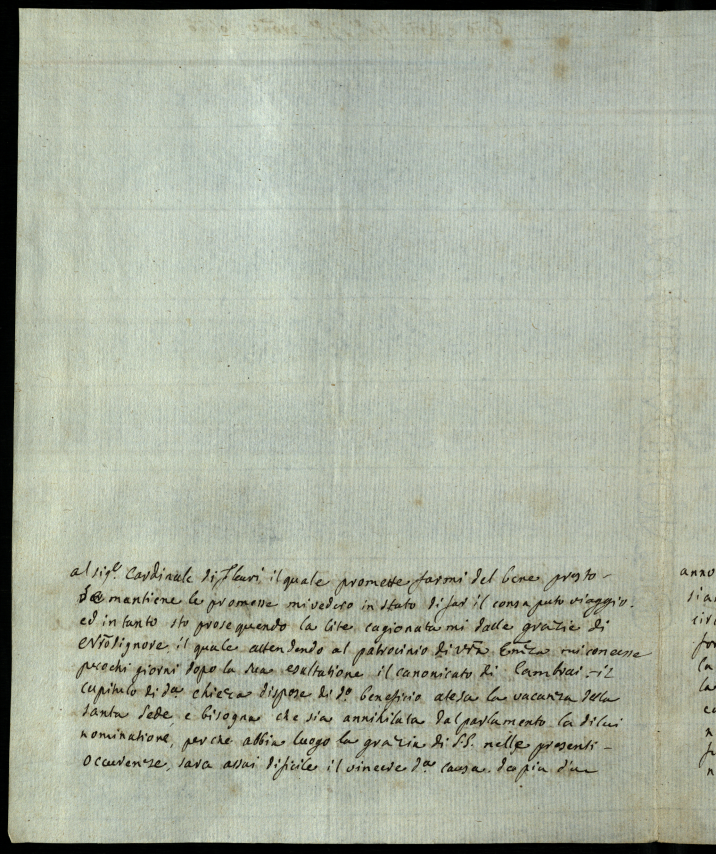 al sig.re Cardinale di fleuri il quale promette farmi del bene presto -
se mantiene le promesse mi vedero in stato di far il consaputo viaggio.
ed in tanto sto prosequendo la lite cagionata mi dalle grazie di
Nro Signore il quale attendendo al patrocinio di Vra Emza mi concesse
pochi giorni dopo la sua esaltatione il canonicato di Cambrai - il
capitulo di da chiesa dispose di do beneficio atesa la vacanza della
santa sede, e bisogna che sia annihilata dal parlamento la di lui
nominatione, perche abbia luogo la grazia di S.S. nelle presenti -
occurenze, sara assai dificile il vincere da causa. da piu d'un
anno
la
la
n